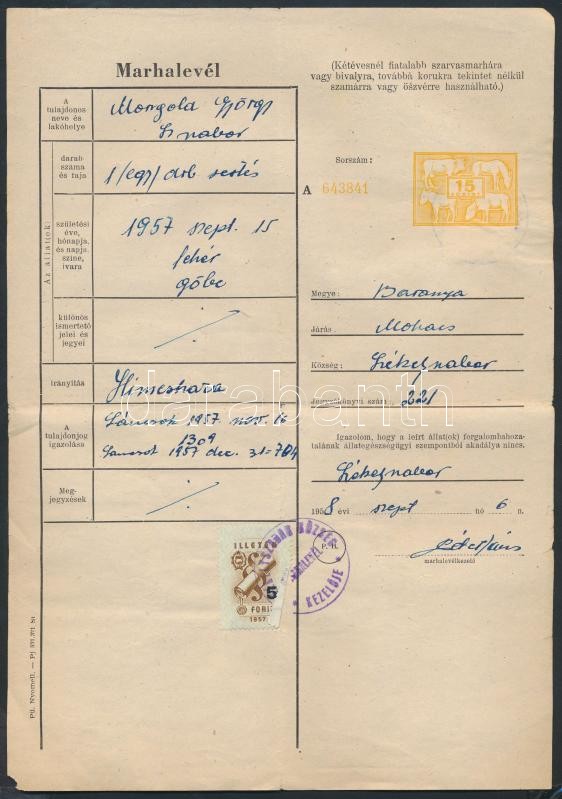 Marhalevél
(Kétévesnél fiatalabb szarvasmarhára
vagy bivalyra, továbbá korukra tekintet nélkül
szamárra vagy öszvérre használható.)
A
tulajdonos
neve és
lakóhelye
Az állat(ok)
darab
száma
és faja
1/egy/ drb sertés
születési
éve,
hónapja
és napja,
színe,
ivara
1957 szept. 15
fehér
göbe
különös
ismertető
jelei és
jegyei
Irányítás
Himesháza
A
tulajdonjog
igazolása
1957 nov. 16
1309
1957 dec. 31-
Meg-
jegyzések
Sorszám:
A 643841
15
Megye: Baranya
Járás: Mohács
Község: Székelyszabar
Jegyzőkönyvi szám: 221
Igazolom, hogy a leírt állat(ok) forgalombahoza-
talának állategészségügyi szempontból akadálya nincs.
Székelyszabar
1958 évi szept hó 6 n.
P. H.
marhalevélkezelő
ILLETÉK
5
FORINT
1957
KÖZSÉG
KEZELŐJE
darabanth